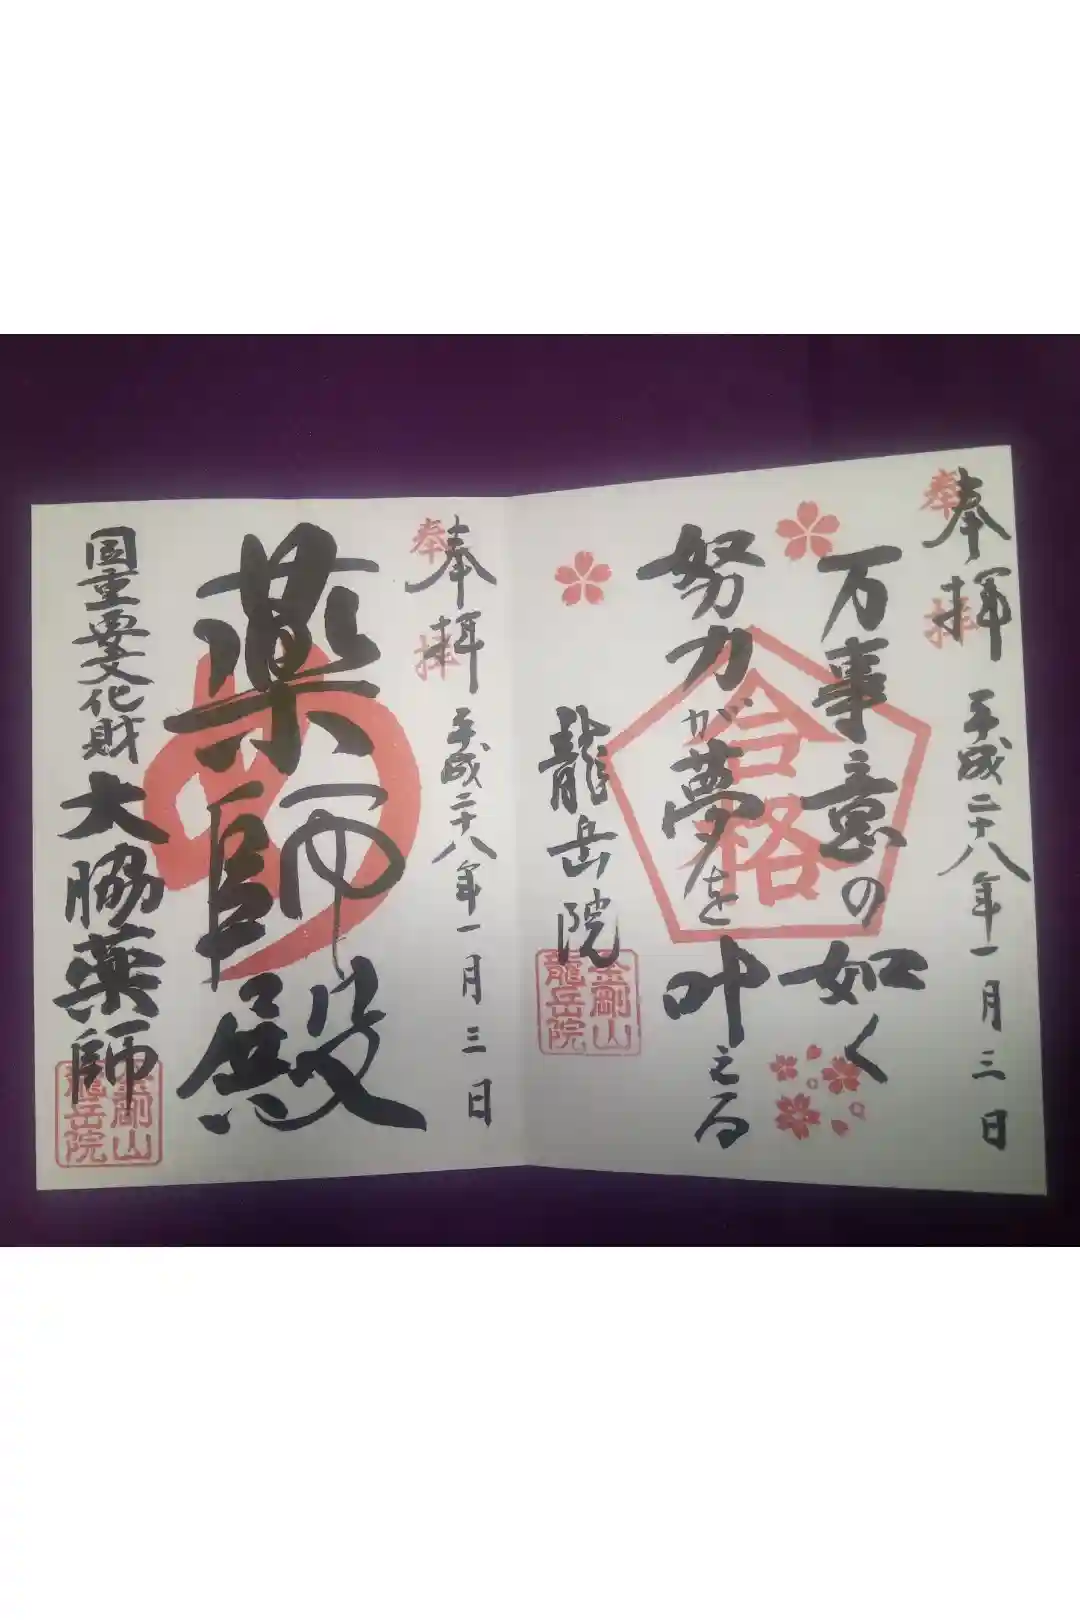 奉拝 平成二十八年一月三日
奉拝
万事意の如く
努力が夢を叶える
合格
龍岳院
金剛山
龍岳院
奉拝 平成二十八年一月三日
奉拝
薬師殿
国重要文化財 大脇薬師
金剛山
龍岳院